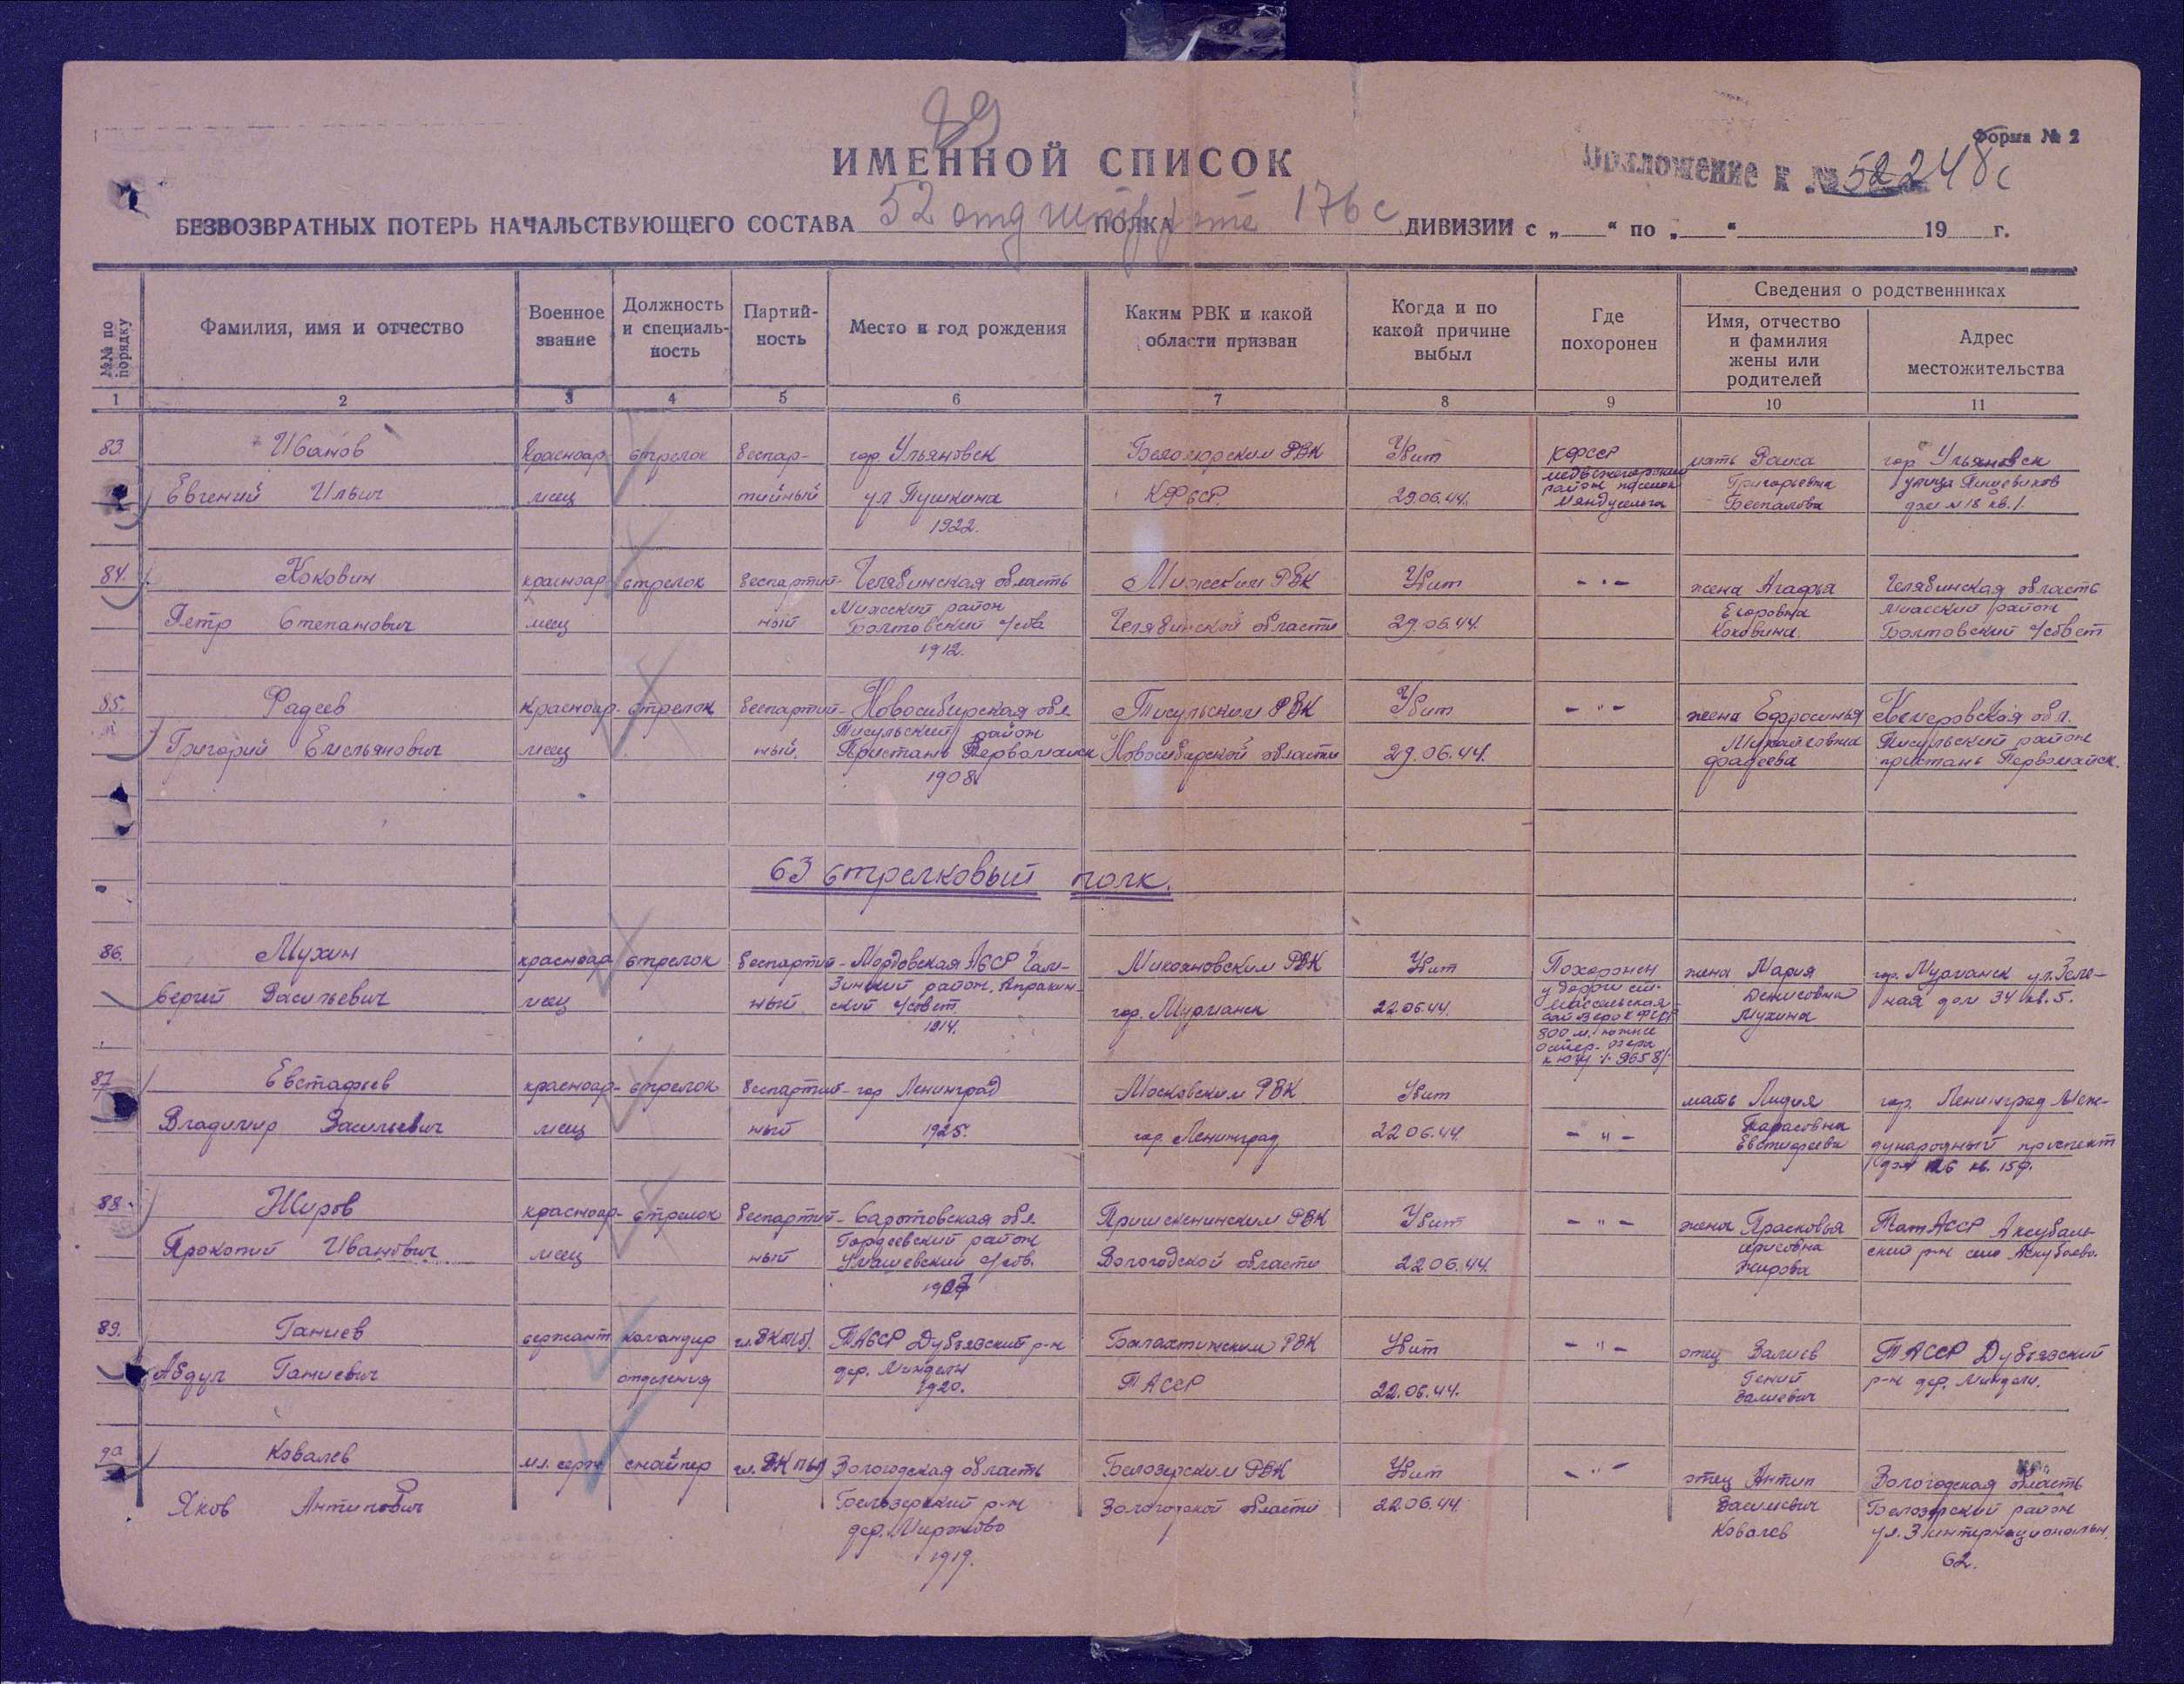 89
Форма № 2
ИМЕННОЙ СПИСОК
Приложение к № 52248с
БЕЗВОЗВРАТНЫХ ПОТЕРЬ НАЧАЛЬСТВУЮЩЕГО СОСТАВА 52 отд ПОЛКА 176 с ДИВИЗИИ с „ “ по „ “ 19 г.
№№ по порядку
Фамилия, имя и отчество
Военное звание
Должность и специаль-ность
Партий-ность
Место и год рождения
Каким РВК и какой области призван
Когда и по какой причине выбыл
Где похоронен
Сведения о родственниках
Имя, отчество и фамилия жены или родителей
Адрес местожительства
1 2 3 4 5 6 7 8 9 10 11
83. Иванов Красноар стрелок беспар- гор. Ульяновск Беломорским РВК Убит КФССР мать Раиса гор Ульяновск
Евгений Ильич меец тийный ул Пушкина КФССР. 29.06.44. медвежегорский район поселок Мяндусельга Григорьевна Беспалова улица Пищевиков дом №18 кв. 1.
1922.
84. Коковин красноар стрелок беспартий- Челябинская область Миасским РВК Убит -"- жена Агафья Челябинская область
Петр Степанович меец ный Миасский район Болтовский с/сов Челябинской области 29.06.44. Егоровна Коковина. Миасский район Болтовский с/совет
1912.
85. Фадеев Красноар- стрелок беспартий- Новосибирская обл Тисульским РВК Убит -"- жена Ефросинья Кемеровская обл.
Григорий Емельянович меец ный. Тисульский район Пристань Первомайск Новосибирской области 29.06.44. Михайловна Фадеева Тисульский район пристань Первомайск.
1908.
63 стрелковый полк.
86. Мухин красноар стрелок беспартий- Мордовская АССР Микояновским РВК Убит Похоронен жена Мария гор. Мурманск ул. Зеле-
Сергей Васильевич меец ный район, ский с/совет гор. Мурманск 22.06.44. у дороги Денисовна Мухина ная дом 34 кв. 5.
1914. 800 м. южнее
87 Евстафеев красноар- стрелок беспартий- гор Ленинград Московским РВК Убит мать Лидия гор. Ленинград Меж-
Владимир Васильевич меец ный 1925. гор Ленинград 22 06.44. -"- Тарасовна Евстафеева дународный проспект
дом 126 кв.
88. Жиров красноар- стрелок беспартий- Саратовская обл. РВК Убит -"- жена Прасковья ТатАССР Аксубаев-
Прокопий Иванович меец ный район с/сов. Вологодской области 22 06.44. Жирова ский р-н село Аксубаево.
1907
89. Ганиев сержант командир чл. ВКП(б). ТАССР Дубъязский р-н РВК Убит -"- отец Валиев ТАССР Дубъязский
Абдул Ганиевич отделения дер. Миндели 1920. ТАССР 22.06.44. Гений Валиевич р-н дер. Миндели.
90 Ковалев мл. серж снайпер чл. ВКП(б) Вологодская область Белозерским РВК Убит -"- отец Антип Вологодская область
Яков Антипович Белозерский р-н Вологодской области 22 06.44. Васильевич Белозерский район
дер. Ковалев ул. 3 интернационалы.
1919. 62.